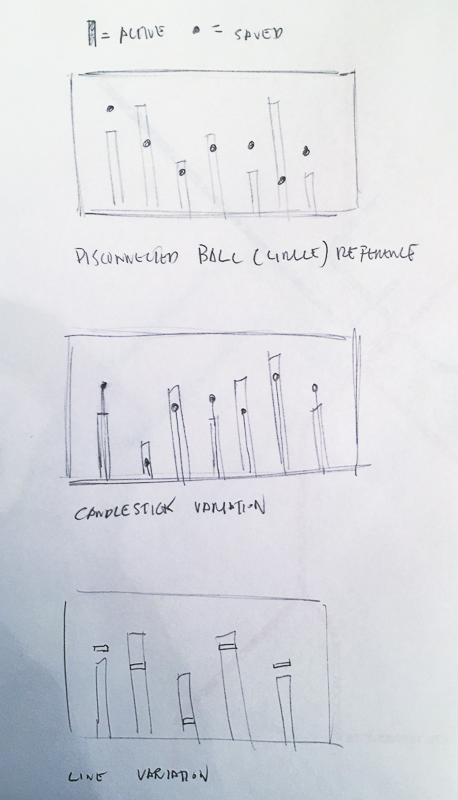 = ACTIVE • = SAVED
DISCONNECTED BALL (CIRCLE) REFERENCE
CANDLESTICK VARIATION
LINE VARIATION